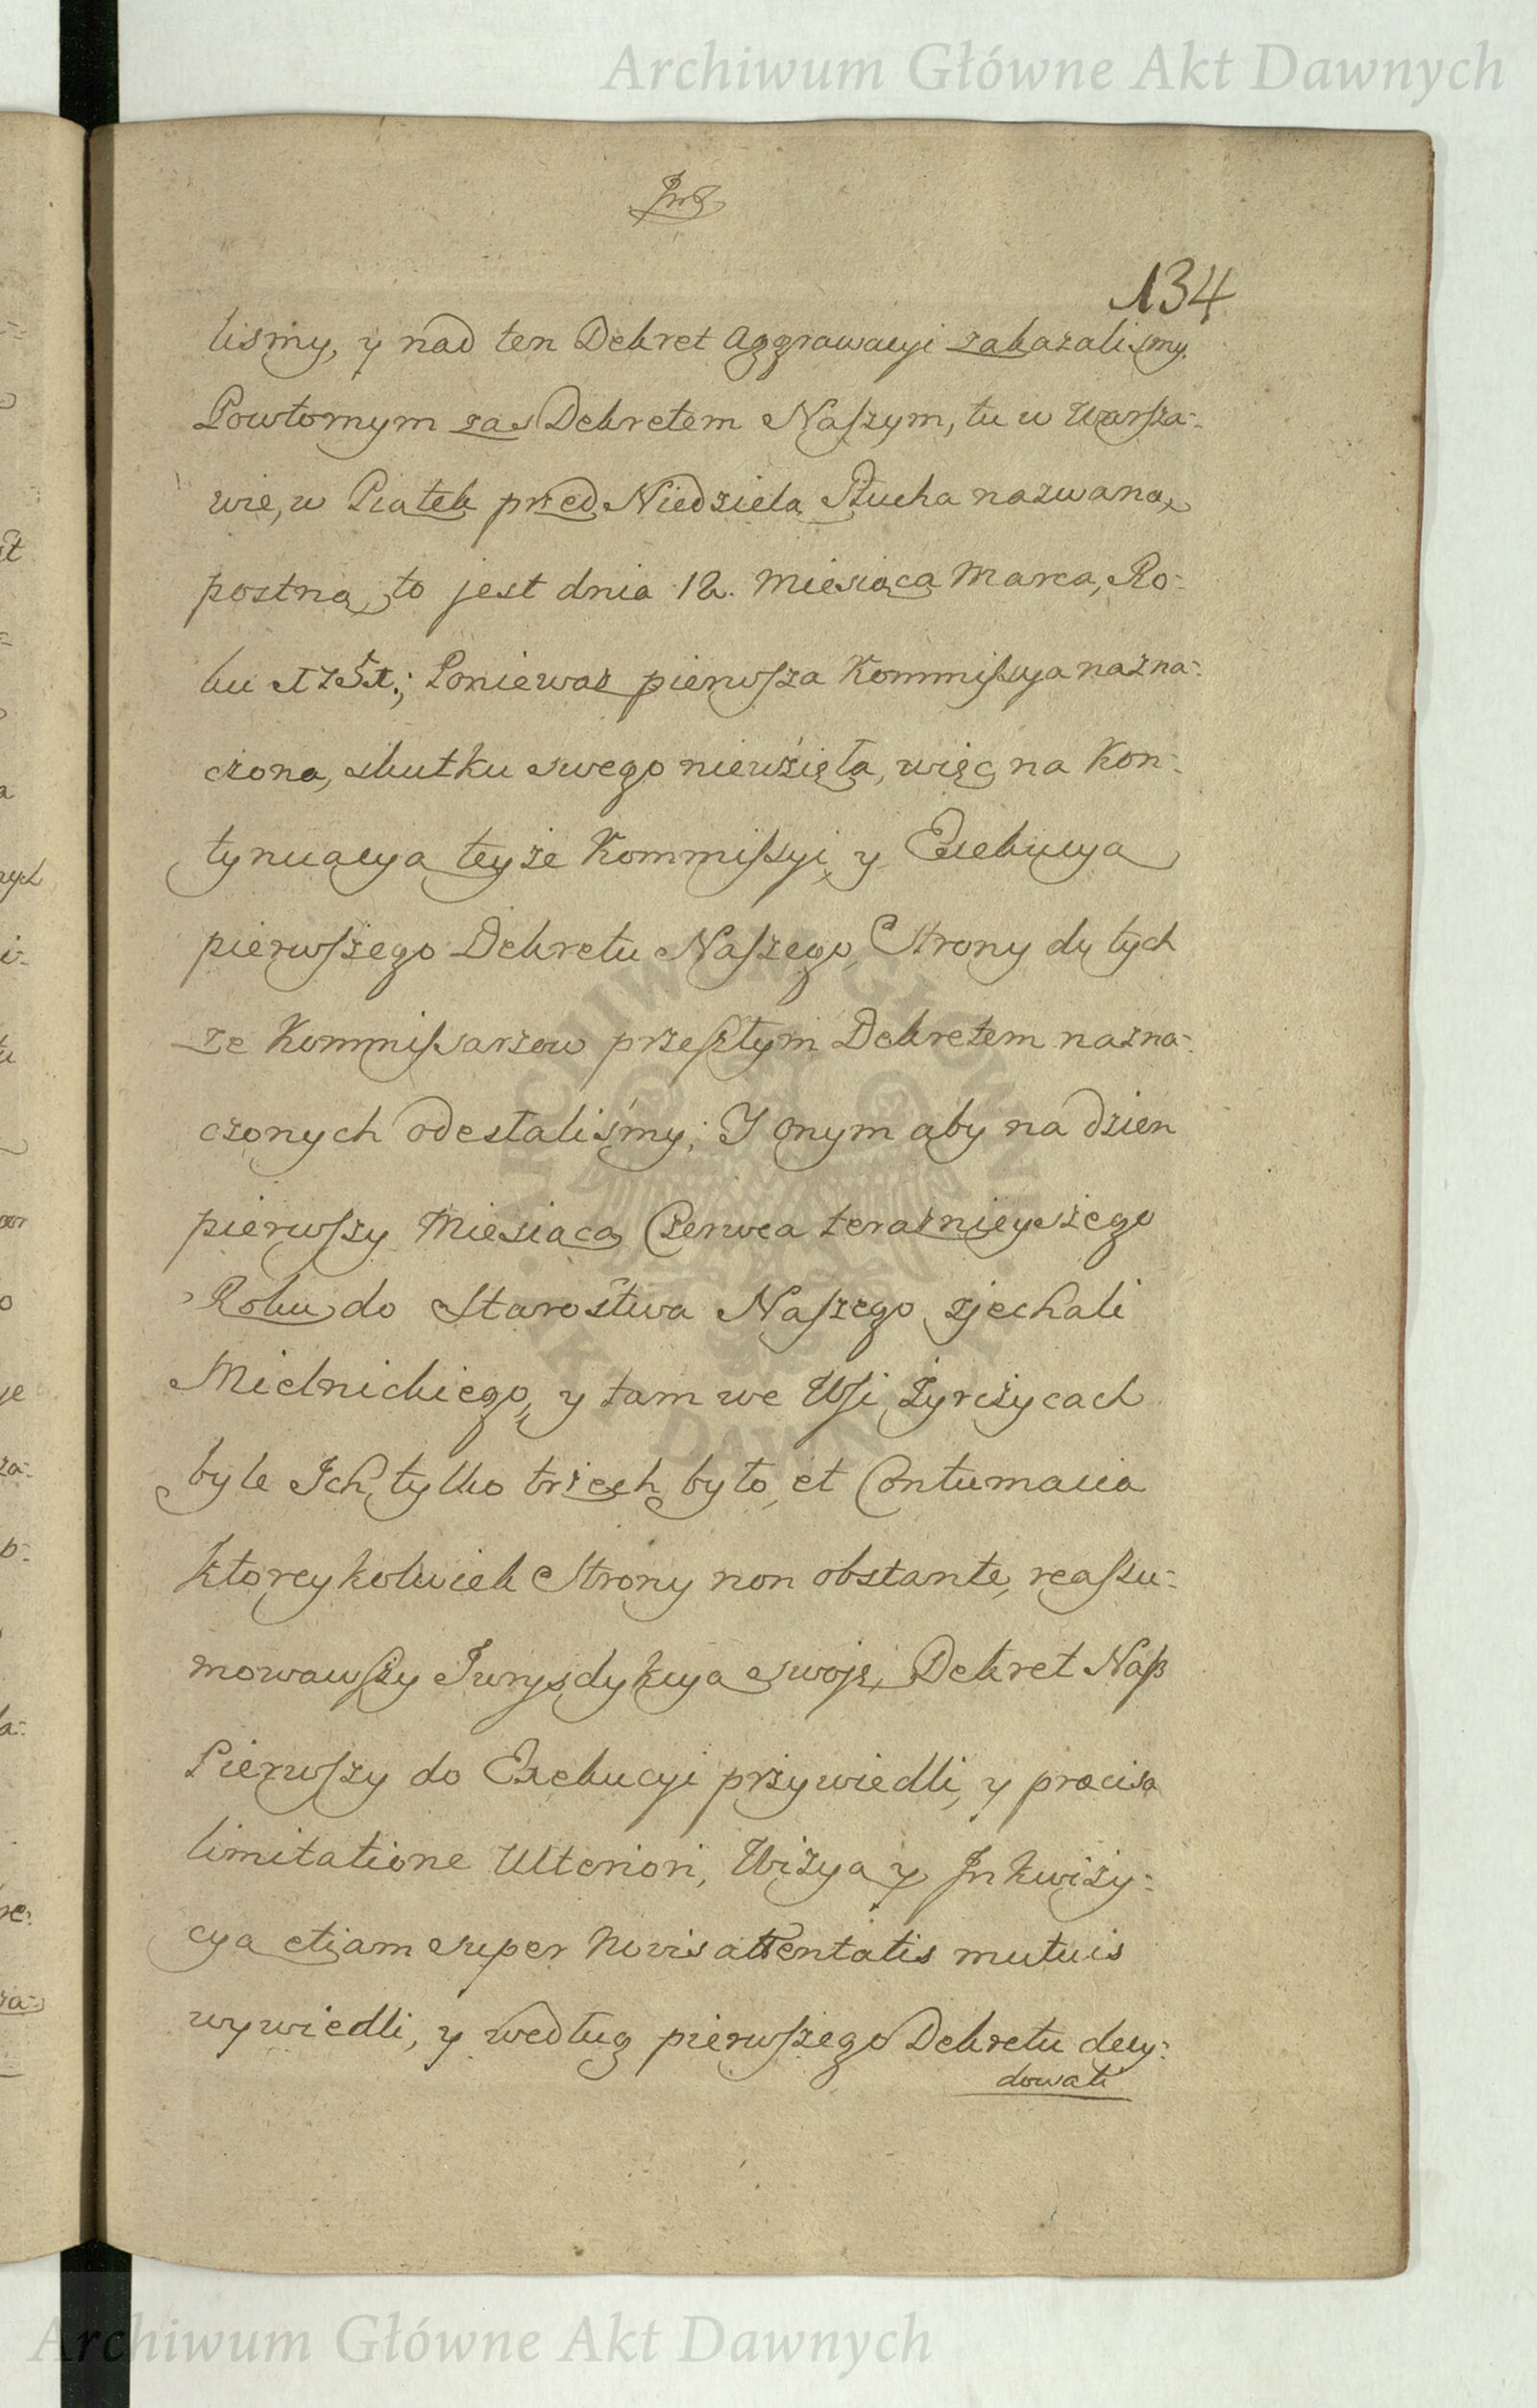 Archiwum Główne Akt Dawnych
134
liśmy, y nad ten Dekret Aggrawacyi zakazaliśmy.
Powtornym zas Dekretem Naszym, tu w Warsza-
wie, w Piątek przed Niedzielą Głucha nazwaną,
postną, to jest dnia 12. Miesiąca Marca, Ro-
ku ; Poniewaz pierwsza Kommissya nazna-
czona, skutku swego niewzięła, więc na Kon-
tynuacyą teyże Kommissyi y Exekucyą
pierwszego Dekretu Naszego, Strony do tych
że Kommissarzow przeszłym Dekretem nazna-
czonych odesłaliśmy; I onym aby na dzien
pierwszy Miesiąca Czerwca teraznieyszego
Roku do Starostwa Naszego zjechali
Mielnickiego, y tam we Wsi Zyrczycach
byle Ich tylko trzech było, et Contumacia
ktoreykolwiek Strony non obstante, reassu-
mowawszy Jurysdykcyą swoję, Dekret Nasz
Pierwszy do Exekucyi przywiedli, y praecisa
limitatione Ulteriori, Wizyą y Inkwizy-
cyą etiam super Novis attentatis mutuis
wywiedli, y według pierwszego Dekretu decy-
dowali
ARCHIWUM GŁÓWNE AKT DAWNYCH
Archiwum Główne Akt Dawnych